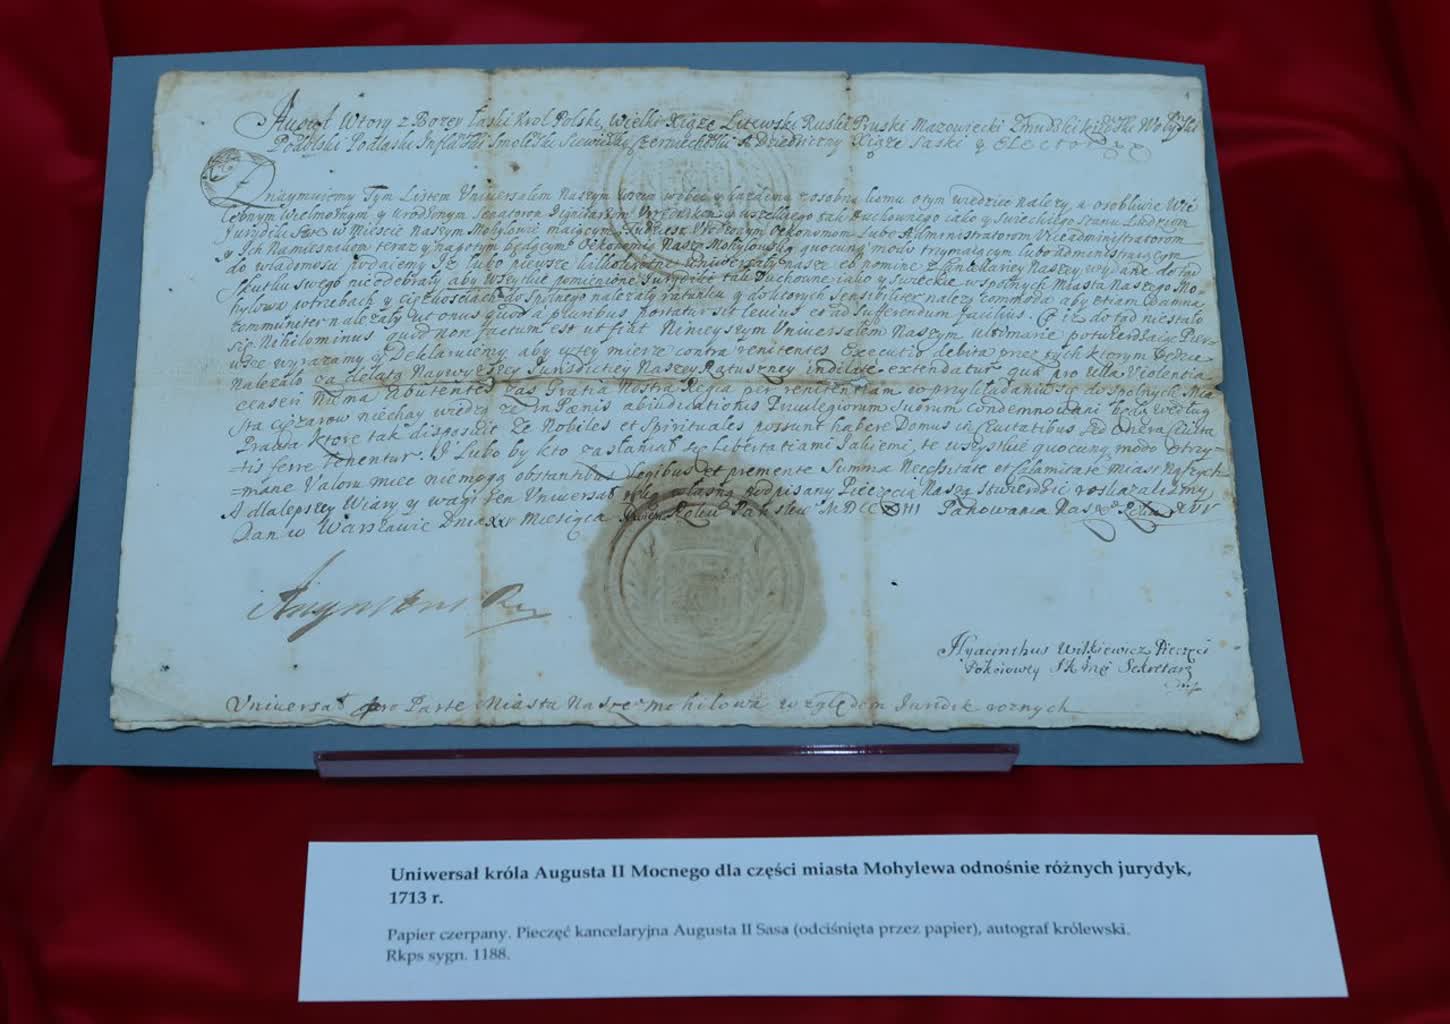 August Wtory z Bozey Łaski Krol Polski, Wielki Xiąże Litewski Ruski Pruski Mazowiecki Żmudzki Kijowski Wołyński
Podolski Podlaski Inflantski Smolenski Siewierski Czerniechowski A Dziedziczny Xiąże Saski y Elector
Znaymujemy Tym Listem Uniwersałem Naszym wszem wobec y każdemu zosobna komu otym wiedzieć należy, a osobliwie Wie
lebnym Wielmożnym y urodzonym Senatorom Dignitarzom Urzędnikom y wszelkiego tak duchownego iako y swieckiego Stanu Ludziom
Jurydiki Swe w Miescie Naszym Mohylowie maiącym, Tudziesz Urodzonym Oekonomom Lubo Administratorom Viceadministratorom
y Ich Namiesnikom teraz y napotym będącym Oekonomią Naszą Mohylowską quocunq modo trzymaiącym lubo administruiącym
do wiadomosci podaiemy Iż lubo pierwsze kilkokrotne uniwersały nasze eo nomine z Cancellariey Naszey wydane do tąd
skutku swego nieodebrały aby wszytkie pomienione Jurydiki tak Duchowne iako y swieckie wspolnych Miasta Naszego Mo-
hylowa potrzebach y ciężkosciach do spolnego należały ratunku y do ktorych sensibiliter należą commoda aby etiam damna
communiter należały ut onus quod a pluribus portatur sit levius et ad sufferendum facilius. Et iż do tąd niestało
się Nihilominus quod non factum est ut fiat Ninieyszym Uniwersałem Naszym ultimarie potwierdzaiąc Pier-
wsze wyrażamy y Deklaruiemy, aby wtey mierze contra renitentes Executio debita przez tych ktorym będzie
Należało za Naywyższey Jurisdictiey Naszey Ratuszney indilate extendatur qua pro ulla Violentia
censeri Nie ma Abutentes zas Gratia Nostra Regia per renitentiam w przykładaniu się do spolnych Mia
sta ciężarow niechay wiedzą ze in Pœnis abiudicationis Priuilegiorum Suorum condemnowani będą według
Prawa ktore tak disposuit Ze Nobiles et Spirituales possunt habere Domus in Ciuitatibus sed Onera Ciuita
=tis ferre tenentur. A Lubo by kto zasłaniał się libertatiami Iakiemi, te wszystkie quocunq modo otrzy-
=mane Valoru miec niemogą obstantibus legibus et premente Summa Necessitate et Calamitate Miast Naszych
A dla lepszey Wiary y wagi ten Uniwersał ręką własną podpisany Pieczęcią Naszą stwierdzić roskazalismy
Dan w Warszawie Dnia XV Miesiąca Roku Panskiego MDCCXIII Panowania Naszego Roku XVI
Augustus Rex
Hyacinthus Witkiewicz Pieczęci
Pokoiowey J K Mci Sekretarz
Uniwersał pro Parte Miasta Naszego Mohilowa względem Juridik roznych
Uniwersał króla Augusta II Mocnego dla części miasta Mohylewa odnośnie różnych jurydyk,
1713 r.
Papier czerpany. Pieczęć kancelaryjna Augusta II Sasa (odciśnięta przez papier), autograf królewski.
Rkps sygn. 1188.